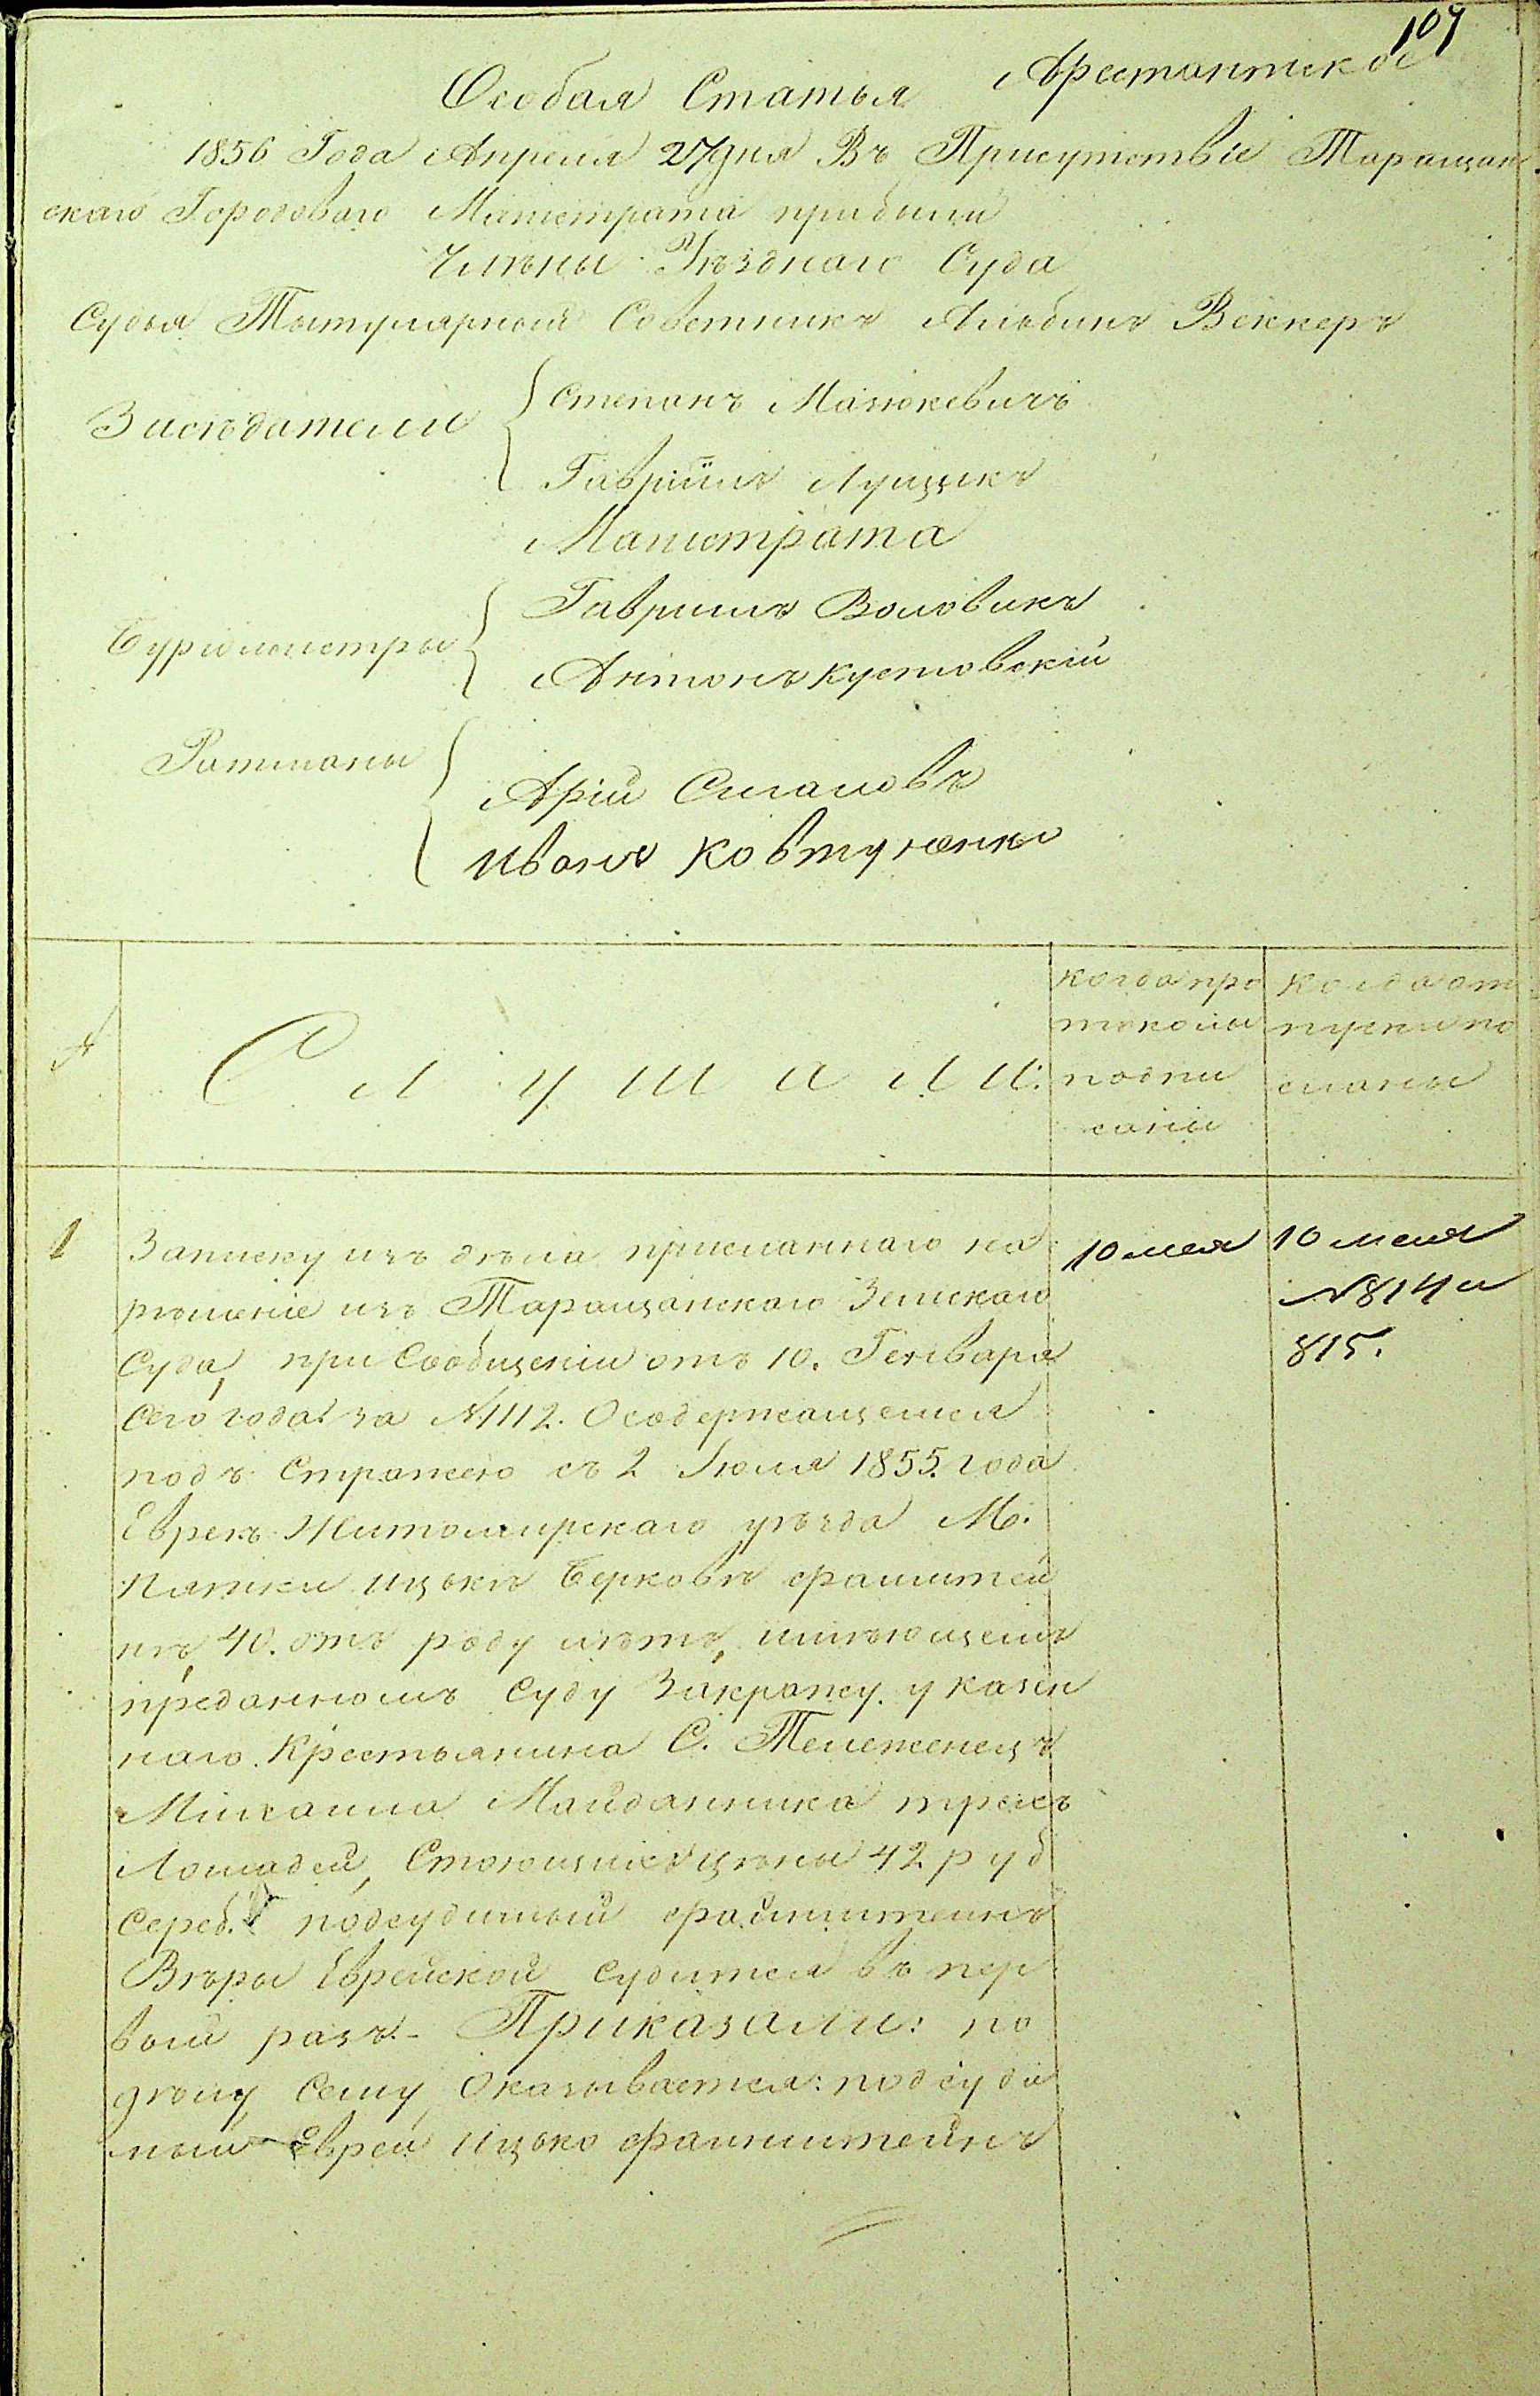 109
Особая Статья Арестантская
1856 Года Апреля 27 дня Въ Присутствіе Таращан
скаго Городоваго Магистрата прибыли
Члѣны Уѣзднаго Суда
Судья Тытулярный Советникъ Альбинъ Веккеръ
Засѣдатели
Степанъ Мазюкевичъ
Гавріилъ Луцыкъ
Магистрата
Бургомистры
Гаврилъ Воловикъ
Антонъ Кустовскій
Ратманы
Арій Силаловъ
Иванъ Ковтуненко
№
Слушали:
когда про
токолы
подпи
саны
Когда от
пуски по
сланы
1
Записку изъ дѣла присланнаго на
рѣшеніе изъ Таращанскаго Земскаго
Суда, при Сообщеніи отъ 10. Генваря
Сего года за №112. О содержащемся
подъ Стражею съ 2 Іюля 1855. года
Евреѣ Житомирскаго уѣзда М.
Пятки Ицькѣ Берковѣ файнштей
нѣ, 40. отъ роду лѣтъ, имѣющемъ
преданномъ Суду За кражу у казен
наго Крестьянина С. Тележенецъ
Михаила Майданника трехъ
Лошадей, Стоющихъ цѣны 42 руб
Сереб. подсудимый файнштейнъ
Вѣры Еврейской Судится въ пер
вый разъ.- Приказали: по
дѣлу Сему Оказывается: подсуди
мый Еврей Ицько файнштейнъ
10 мая
10 мая
№ 814 и
815.